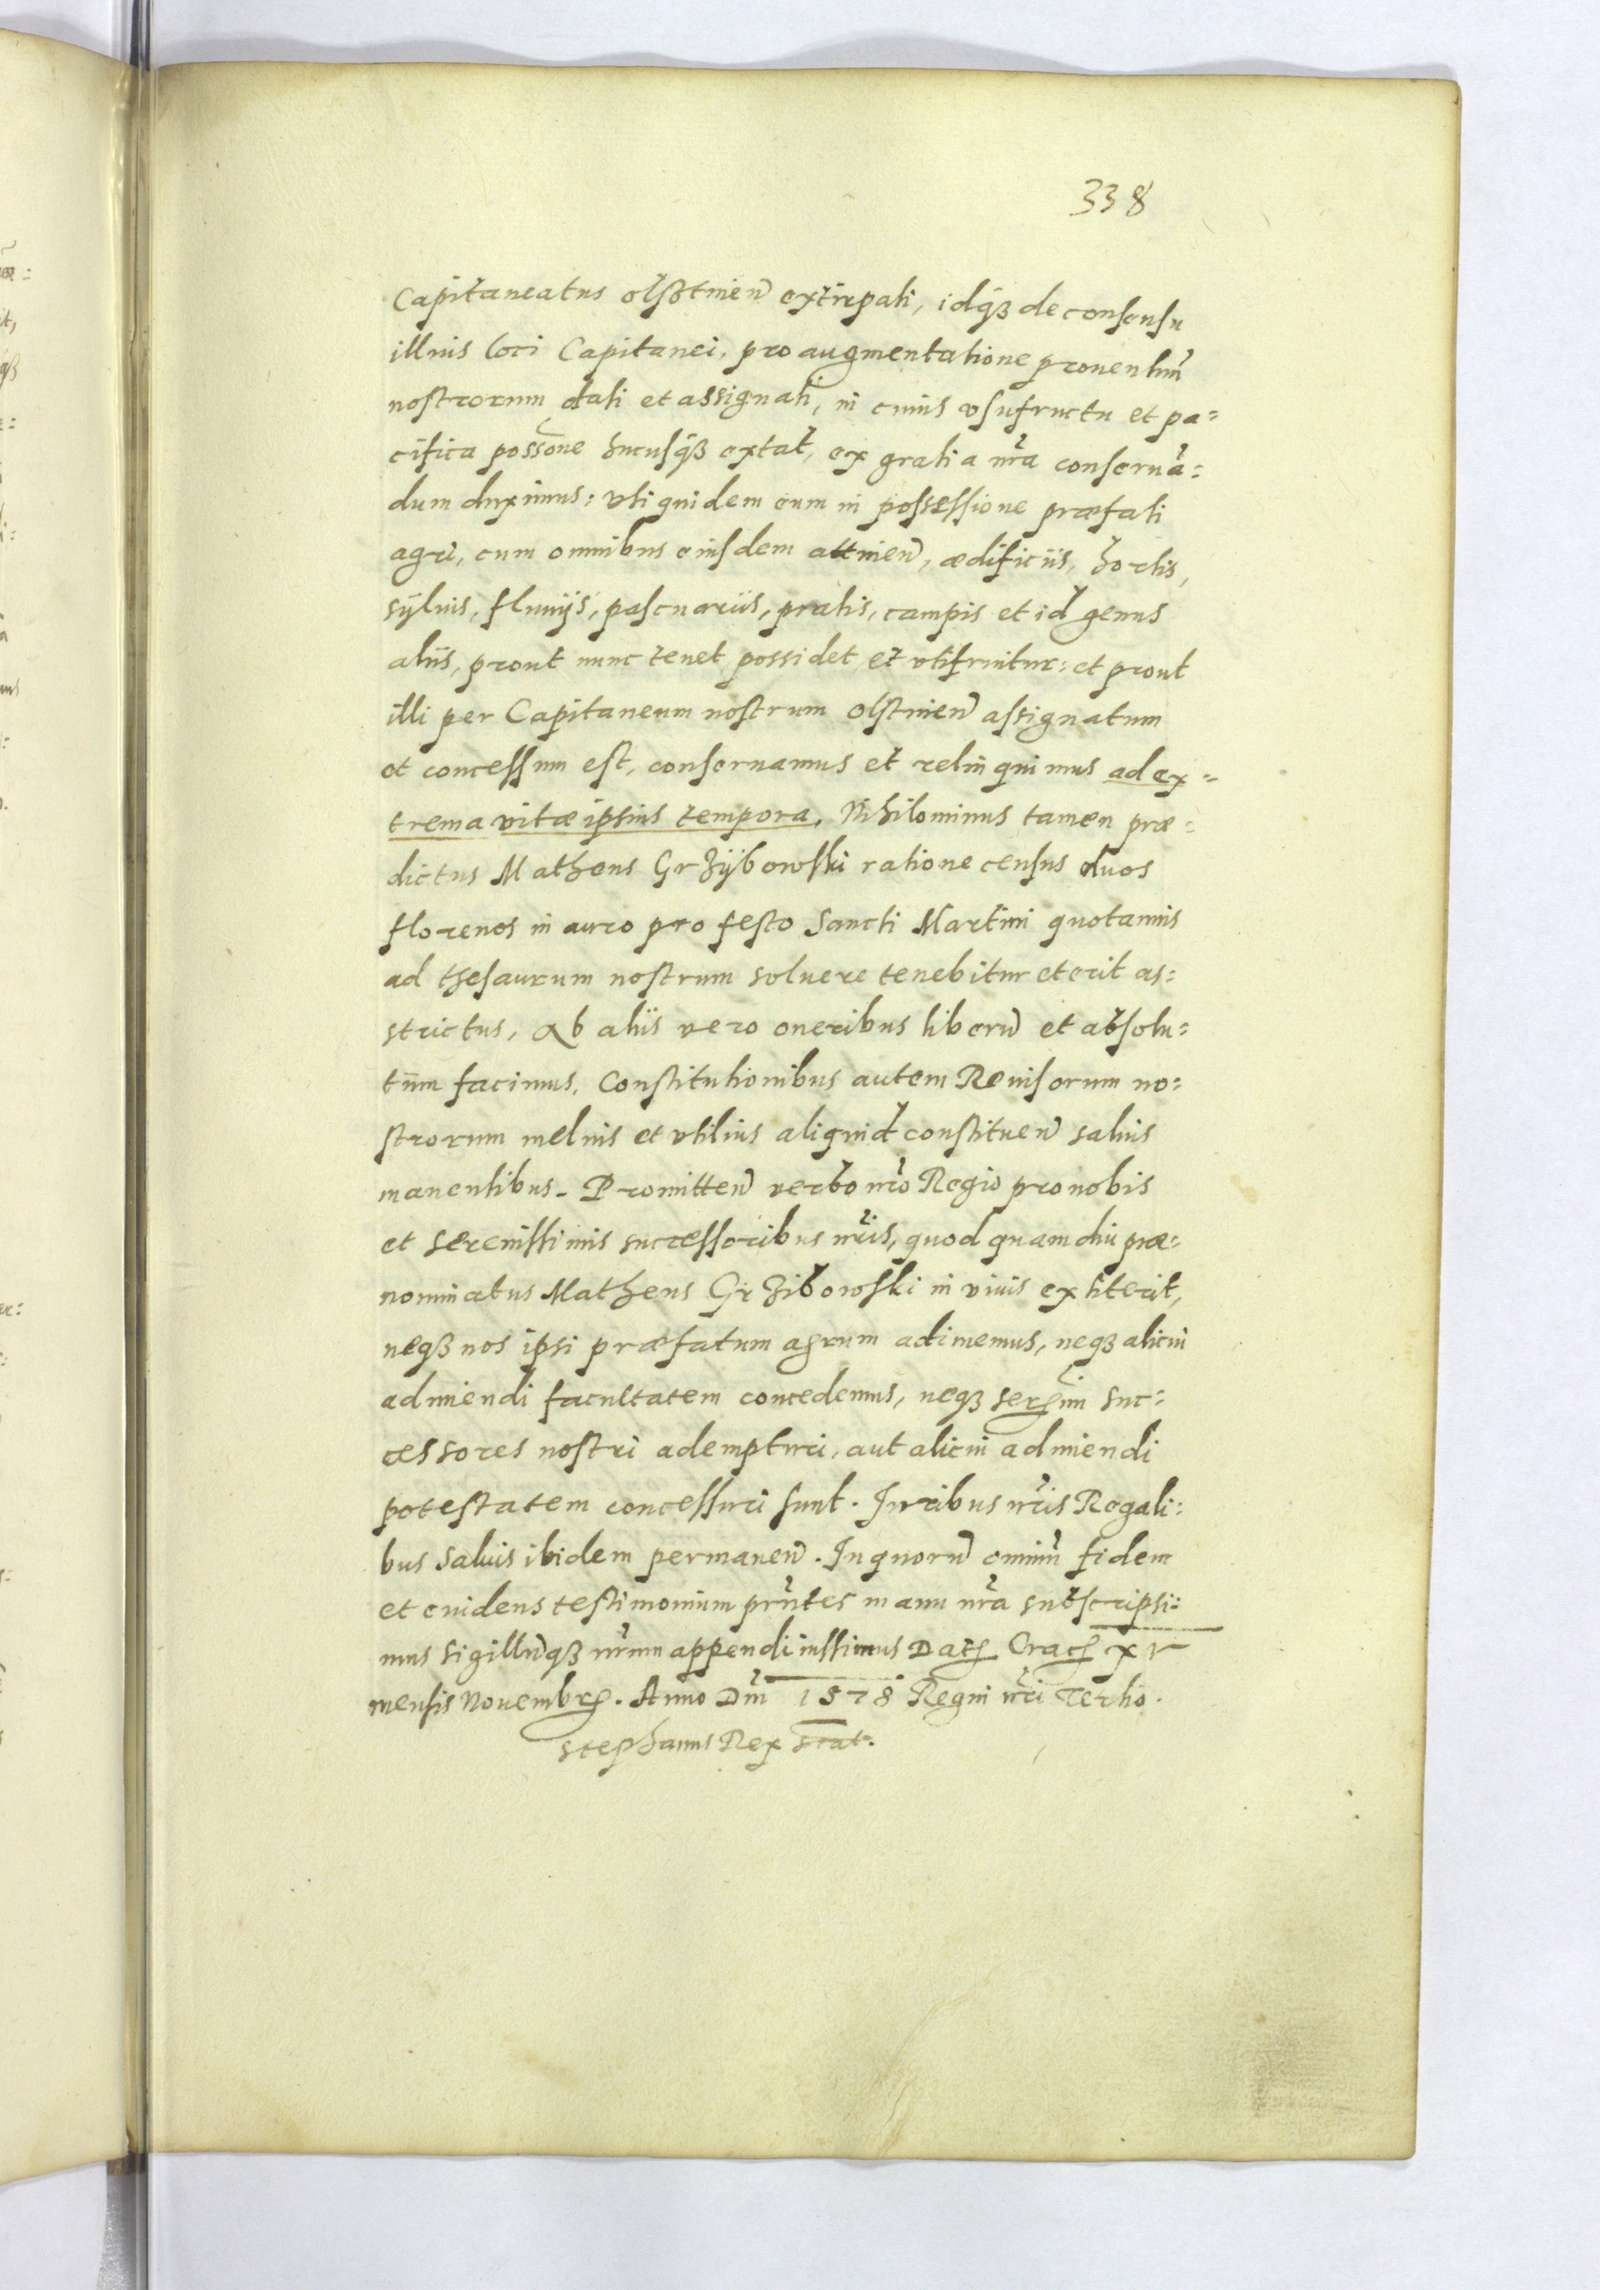 338
Capitaneatus olsotinen̄ extirpati, idq́ꝫ de consensu
illius loci Capitanei, pro augmentatione prouentuū
nostrorum dati et assignati, in cuius vsufructu et pa=
cifica possōne hucusq́ꝫ extat, ex gratia nr̄a conseruā=
dum duximus: vti quidem eum in possessione præfati
agri, cum omnibus eiusdem attinen̄, ædificiis, hortis,
sÿluis, fluuijs, pascuariis, pratis, campis et id genus
aliis, prout nunc tenet possidet et vtifruitur: et prout
illi per Capitaneum nostrum olstinen̄ assignatum
et concessum est, conseruamus et relinquimus ad ex=
trema vitæ ipsius tempora. Nihilominus tamen præ=
dictus Matheus Grzÿbowski ratione census duos
florenos in auro pro festo Sancti Martini quotannis
ad thesaurum nostrum soluere tenebitur et erit as=
strictus, Ab aliis vero oneribus liberū et absolu=
tum facimus. Constitutionibus autem Reuisorum no=
strorum melius et vtilius aliquid constituen̄ saluis
manentibus. Promitten̄ verbo nr̄o Regio pro nobis
et Serenissimis successoribus nr̄is, quod quamdiu præ=
nominatus Matheus Grzibowski in viuis extiterit,
neqꝫ nos ipsi præfatum agrum adimemus, neqꝫ alicui
adimendi facultatem concedemus, neqꝫ serᷤmi suc=
cessores nostri adempturi, aut alicui adimendi
potestatem concessuri sunt. Iuribus nr̄is Regali=
bus saluis ibidem permanen̄. In quorū omniū fidem
et euidens testimonium pn̄tes manu nr̄a subscripsi=
mus sigillūqꝫ nr̄um appendi iussimus Datꝭ Cracꝭ xv
mensis Nouembrꝭ. Anno Dn̄i 1578 Regni nr̄i Tertio.
Stephanus Rex scat.